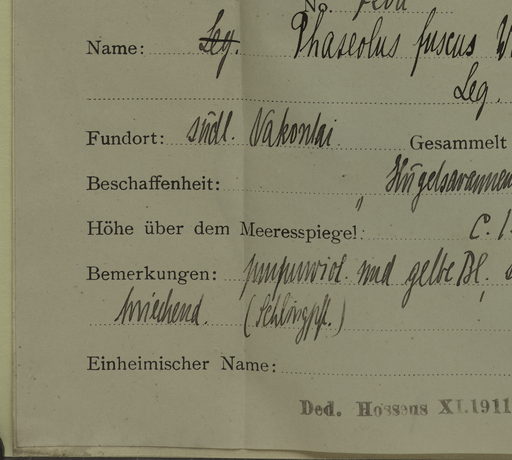 No.
Name: Leg. Phaseolus fuscus W
Leg.
Fundort: südl. Vakontai Gesammelt
Beschaffenheit: Hügelsavannen
Höhe über dem Meeresspiegel: c. 1
Bemerkungen: purpurviol. und gelbe Bl.
kriechend. (Schlingpfl.)
Einheimischer Name:
Ded. Hosseus XI.1911